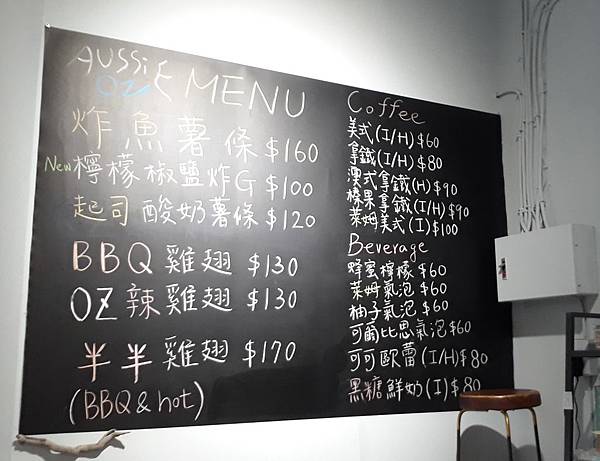 AUSSIE
OZ MENU
炸魚薯條 $160
New 檸檬椒鹽炸G $100
起司酸奶薯條 $120
BBQ 雞翅 $130
OZ 辣雞翅 $130
半半雞翅 $170
(BBQ & hot)
Coffee
美式 (I/H) $60
拿鐵 (I/H) $80
澳式拿鐵 (H) $90
榛果拿鐵 (I/H) $90
萊姆美式 (I) $100
Beverage
蜂蜜檸檬 $60
萊姆氣泡 $60
柚子氣泡 $60
可爾比思氣泡 $60
可可歐蕾 (I/H) $80
黑糖鮮奶 (I) $80